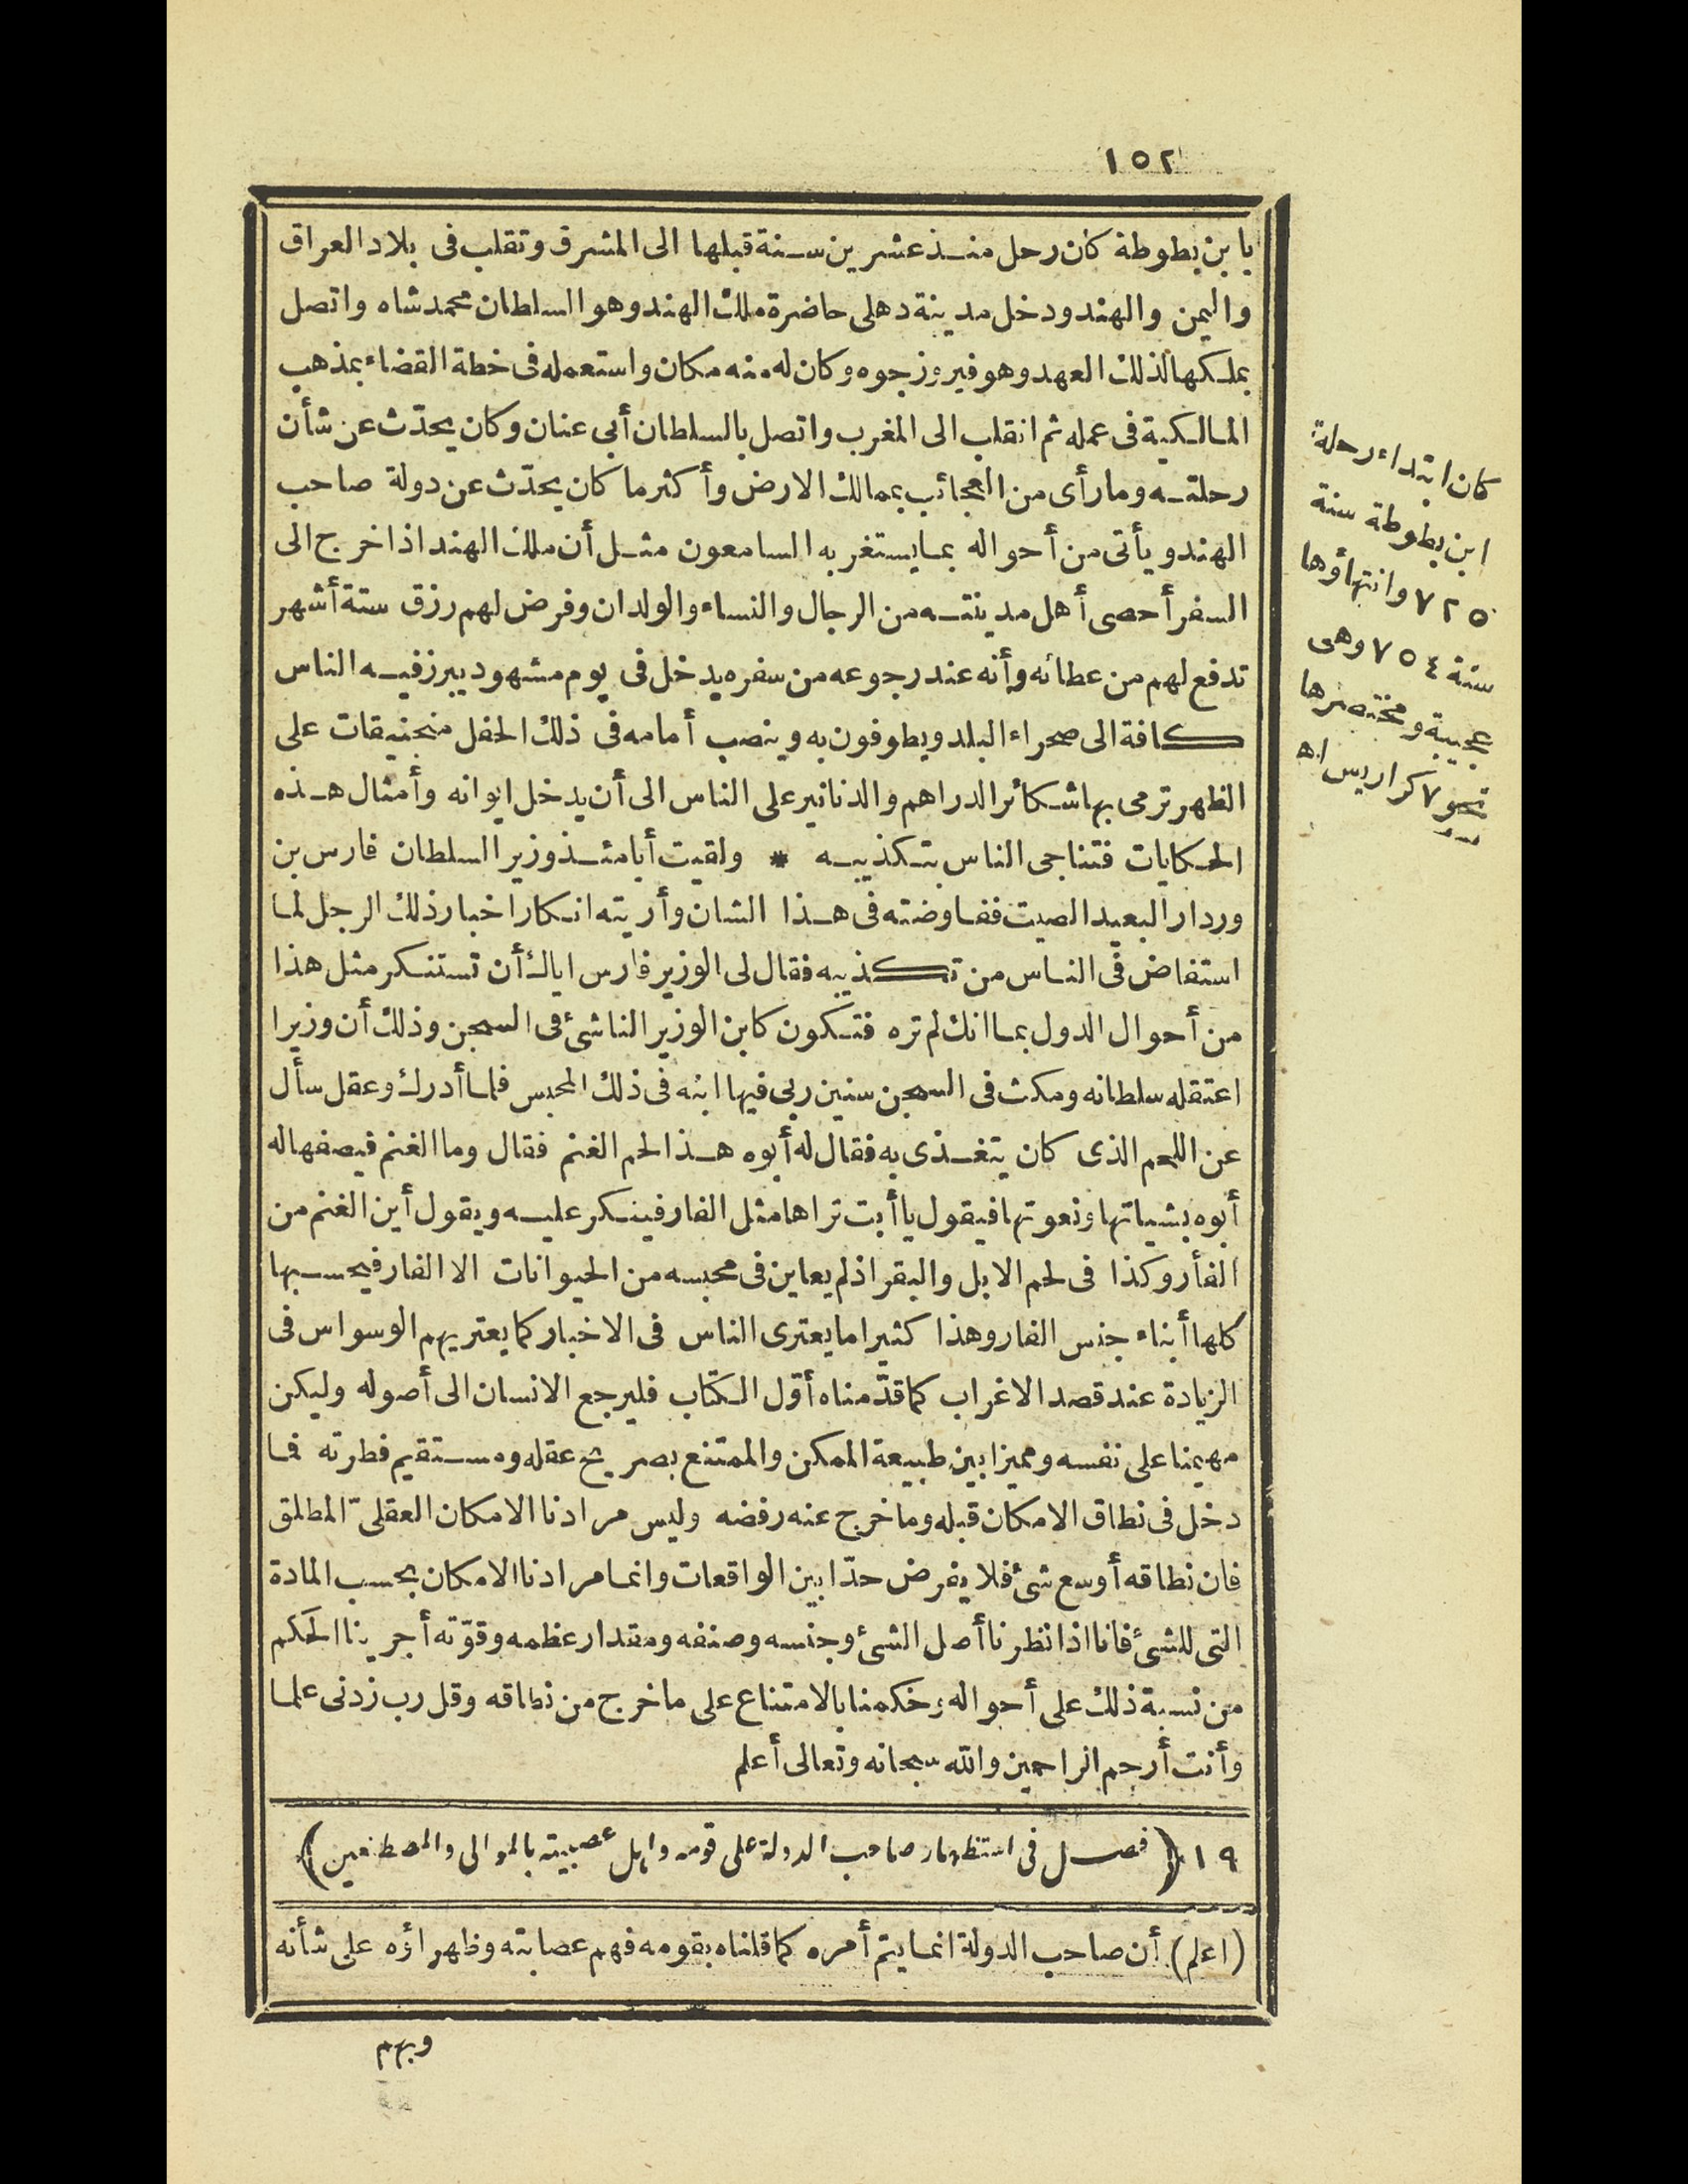 ١٥٢
بابن بطوطة كان رحل منذ عشرين سنة قبلها الى المشرق وتقلب فى بلاد العراق
واليمن والهند ودخل مدينة دهلى حاضرة ملك الهند وهو السلطان محمد شاه واتصل
بملكها لذلك العهد وهو فيروزجوه وكان له منه مكان واستعمله فى خطة القضاء بمذهب
المالكية فى عمله ثم انقلب الى المغرب واتصل بالسلطان أبى عنان وكان يحدّث عن شأن
رحلته وما رأى من العجائب بممالك الارض وأكثر ما كان يحدّث عن دولة صاحب
الهند ويأتى من أحواله بما يستغربه السامعون مثل أن ملك الهند اذا خرج الى
السفر أحصى أهل مدينته من الرجال والنساء والولدان وفرض لهم رزق ستة أشهر
تدفع لهم من عطائه وأنه عند رجوعه من سفره يدخل فى يوم مشهود يبرز فيه الناس
كافة الى صحراء البلد ويطوفون به وينصب أمامه فى ذلك الحفل منجنيقات على
الظهر ترمى بها شكائر الدراهم والدنانير على الناس الى أن يدخل ايوانه وأمثال هذه
الحكايات فتناجى الناس بتكذيبه * ولقيت أيامئذ وزير السلطان فارس بن
وردار البعيد الصيت ففاوضته فى هذا الشان وأريته انكار اخبار ذلك الرجل لما
استفاض فى الناس من تكذيبه فقال لى الوزير فارس اياك أن تستنكر مثل هذا
من أحوال الدول بما انك لم تره فتكون كابن الوزير الناشئ فى السجن وذلك أن وزيرا
اعتقله سلطانه ومكث فى السجن سنين ربى فيها ابنه فى ذلك المحبس فلما أدرك وعقل سأل
عن اللحم الذى كان يتغذى به فقال له أبوه هذا لحم الغنم فقال وما الغنم فيصفها له
أبوه بشياتها ونعوتها فيقول يا أبت تراها مثل الفار فينكر عليه ويقول أين الغنم من
الفأر وكذا فى لحم الابل والبقر اذ لم يعاين فى محبسه من الحيوانات الا الفار فيحسبها
كلها أبناء جنس الفار وهذا كثيرا ما يعترى الناس فى الاخبار كما يعتريهم الوسواس فى
الزيادة عند قصد الاغراب كما قدّمناه أوّل الكتاب فليرجع الانسان الى أصوله وليكن
مهيمنا على نفسه ومميزا بين طبيعة الممكن والممتنع بصريح عقله ومستقيم فطرته فما
دخل فى نطاق الامكان قبله وما خرج عنه رفضه وليس مرادنا الامكان العقلىّ المطلق
فان نطاقه أوسع شئ فلا يفرض حدّا بين الواقعات وانما مرادنا الامكان بحسب المادة
التى للشئ فانا اذا نظرنا أصل الشئ وجنسه وصنفه ومقدار عظمه وقوّته أجرينا الحكم
من نسبة ذلك على أحواله وحكمنا بالامتناع على ما خرج من نطاقه وقل رب زدنى علما
وأنت أرحم الراحمين والله سبحانه وتعالى أعلم
١٩ (فصل فى استظهار صاحب الدولة على قومه واهل عصبيته بالموالى والمصطنعين)
(اعلم) أن صاحب الدولة انما يتم أمره كما قلناه بقومه فهم عصابته وظهراؤه على شأنه
وبهم
كان ابتداء رحلة
ابن بطوطة سنة
٧٢٥ وانتهاؤها
سنة ٧٥٤ وهى
عجيبة ومختصرها
نحو ٧ كراريس اه